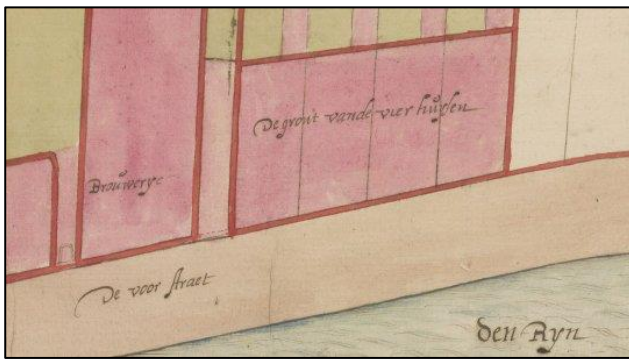 De gront vande vier huÿsen
Brouwerye
De voor straet
den Ryn